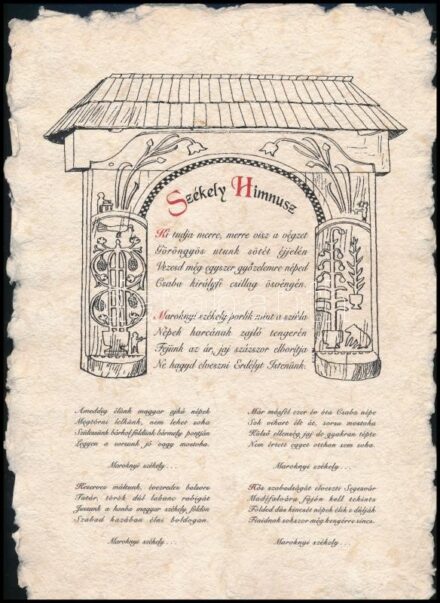 Székely Himnusz
Ki tudja merre, merre visz a végzet
Göröngyös utunk sötét éjjelén
Vezesd még egyszer győzelemre néped
Csaba királyfi csillag ösvényén.
Maroknyi székely porlik mint a szikla
Népek harcának zajló tengerén
Fejünk az ár, jaj százszor elborítja
Ne hagyd elveszni Erdélyt Istenünk.
Ameddig élünk magyar ajkú népek
Megtörni lelkünk, nem lehet soha
Szülessünk bárhol földünk bármely pontján
Leggyen a sorsunk jó vagy mostoha.
Maroknyi székely...
Keserves múltunk, évezredes balsors
Tatár, török dúl labanc rabigát
Jussunk a honba magyar székely földön
Szabad hazában élni boldogan.
Maroknyi székely...
Már másfél ezer év óta Csaba népe
Sok vihart élt át, sorsa mostoha
Külső ellenség jaj de gyakran tépte
Nem értett egyet otthon sem soha.
Maroknyi székely...
Hős szabadságát elveszté Segesvár
Mádéfalvára fájón kell tekints
Földed dús kincsét népek élik s dúlják
Fiaidnak sokszor még kenyérre sincs.
Maroknyi székely...